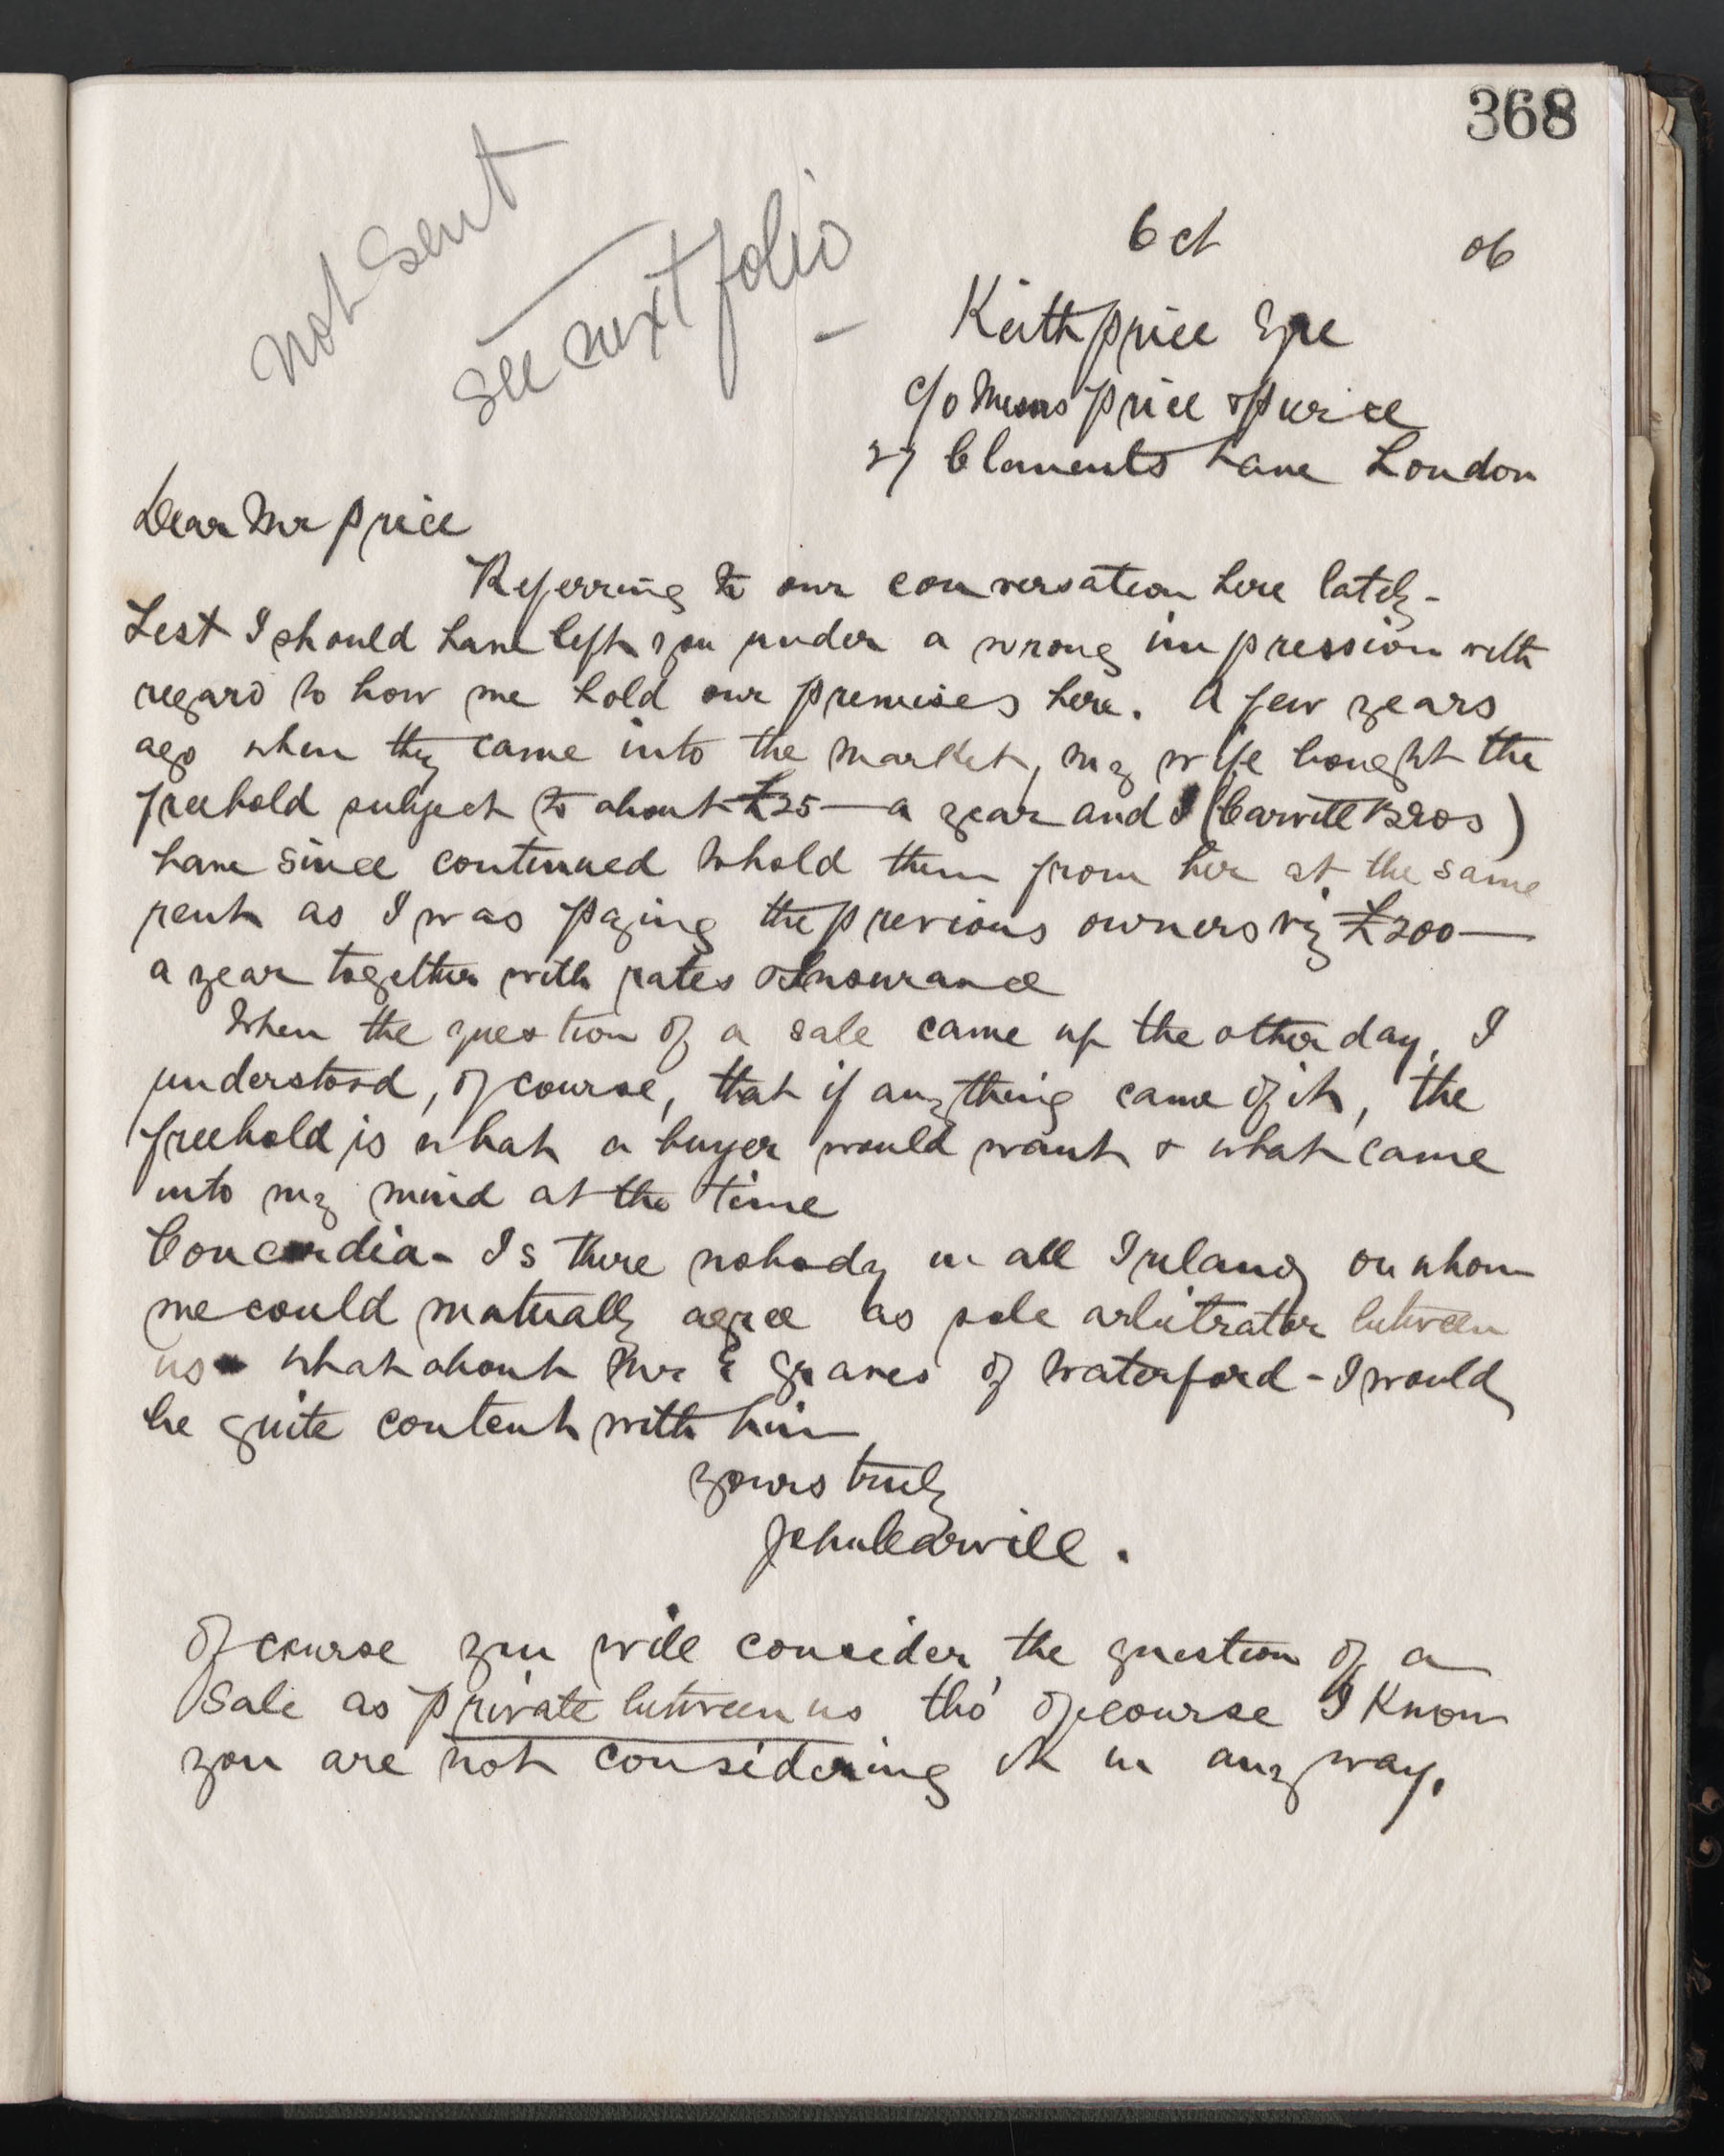 368
Not Sent
See next folio
6 Oct 06
Keith Price Esqre
c/o Messrs Price & Pierce
27 Clements Lane London
Dear Mr Price
Referring to our conversation here lately -
Lest I should have left you under a wrong impression with
regard to how we hold our premises here. A few years
ago when they came into the market, my wife bought the
freehold subject to about £25 — a year and I (Carvill Bros)
have since continued to hold them from her at the same
rent as I was paying the previous owners viz £200 —
a year together with rates & Insurance
When the question of a sale came up the other day, I
understood, of course, that if anything came of it, the
freehold is what a buyer would want & what came
into my mind at the time
Concordia - Is there nobody in all Ireland on whom
we could mutually agree as sole arbitrator between
us - what about Mr E Graves of Waterford - I would
be quite content with him
Yours truly
John Carvill.
Of course you will consider the question of a
sale as private between us tho' of course I know
you are not considering it in any way.